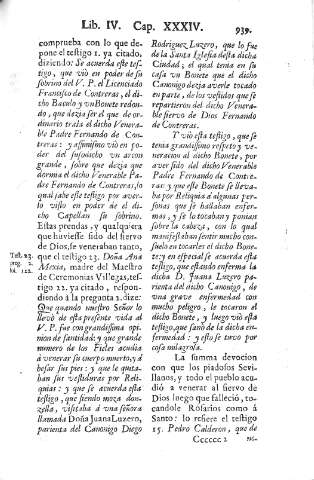 Lib. IV. Cap. XXXIV. 939.
comprueba con lo que de-
pone el testigo 1. ya citado,
diziendo: Se acuerda este tes-
tigo, que viò en poder de su
sobrino del V. P. el Licenciado
Francisco de Contreras, el di-
cho Baculo y un Bonete redon-
do, que dezia ser el que de or-
dinario traìa el dicho Venera-
ble Padre Fernando de Con-
treras: y assimismo viò en po-
der del susodicho un arcon
grande, sobre que dezia que
dormia el dicho Venerable Pa-
dre Fernando de Contreras, lo
qual sabe este testigo por aver-
lo visto en poder de el dicho
Capellan su sobrino.
Estas prendas, y qualquiera
que huviesse sido del siervo
de Dios, se veneraban tanto,
que el testigo 23. Doña Ana
Mexia, madre del Maestro
de Ceremonias Villegas, tes-
tigo 22. ya citado, respon-
diendo à la pregunta 2. dize:
Que quando nuestro Señor lo
llevò de esta presente vida al
V. P. fue con grandissima opi-
nion de santidad: y que grande
numero de los Fieles acudia
à venerar su cuerpo muerto, y à
besar sus pies: y que le quita-
ban sus vestiduras por Reli-
quias: y que se acuerda esta
testigo, que siendo moza don-
zella, visitaba à una señora
llamada Doña Juana Luzero,
parienta del Canonigo Diego
Test. 23.
preg. 2.
Rodriguez Luzero, que lo fue
de la Santa Iglesia desta dicha
Ciudad; el qual tenia en su
casa un Bonete que el dicho
Canonigo dezia averle tocado
en parte, de los vestidos que se
repartieron del dicho Venera-
ble siervo de Dios Fernando
de Contreras.
Y viò esta testigo, que se
tenia grandissimo respeto y ve-
neracion al dicho Bonete, por
aver sido del dicho Venerable
Padre Fernando de Contre-
ras: y que este Bonete se lleva-
ba por Reliquia à algunas per-
sonas que se hallaban enfer-
mas, y se lo tocaban y ponian
sobre la cabeza, con lo qual
manifestaban sentir mucho con-
suelo en tocarles el dicho Bone-
te: y en especial se acuerda esta
testigo, que estando enferma la
dicha D. Juana Luzero pa-
rienta del dicho Canonigo, de
una grave enfermedad con
mucho peligro, le tocaron el
dicho Bonete, y luego viò esta
testigo, que sanò de la dicha en-
fermedad: y esto se tuvo por
cosa milagrosa.
La summa devocion
con que los piadosos Sevi-
llanos, y todo el pueblo acu-
diò à venerar al siervo de
Dios luego que falleciò, to-
candole Rosarios como à
Santo: lo refiere el testigo
15. Pedro Calderon, que de
Cccccc 2